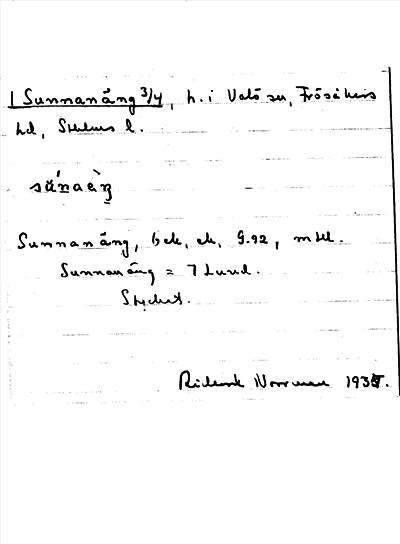 1 Sunnanäng 3/4, h. i Valö sn, Frösåkers
hd, Sthlms l.
súnaèŋ
Sunnanäng, bek, ek, G.92, mtl.
Sunnanäng = 7 Lund.
Richard Norrman 1935.